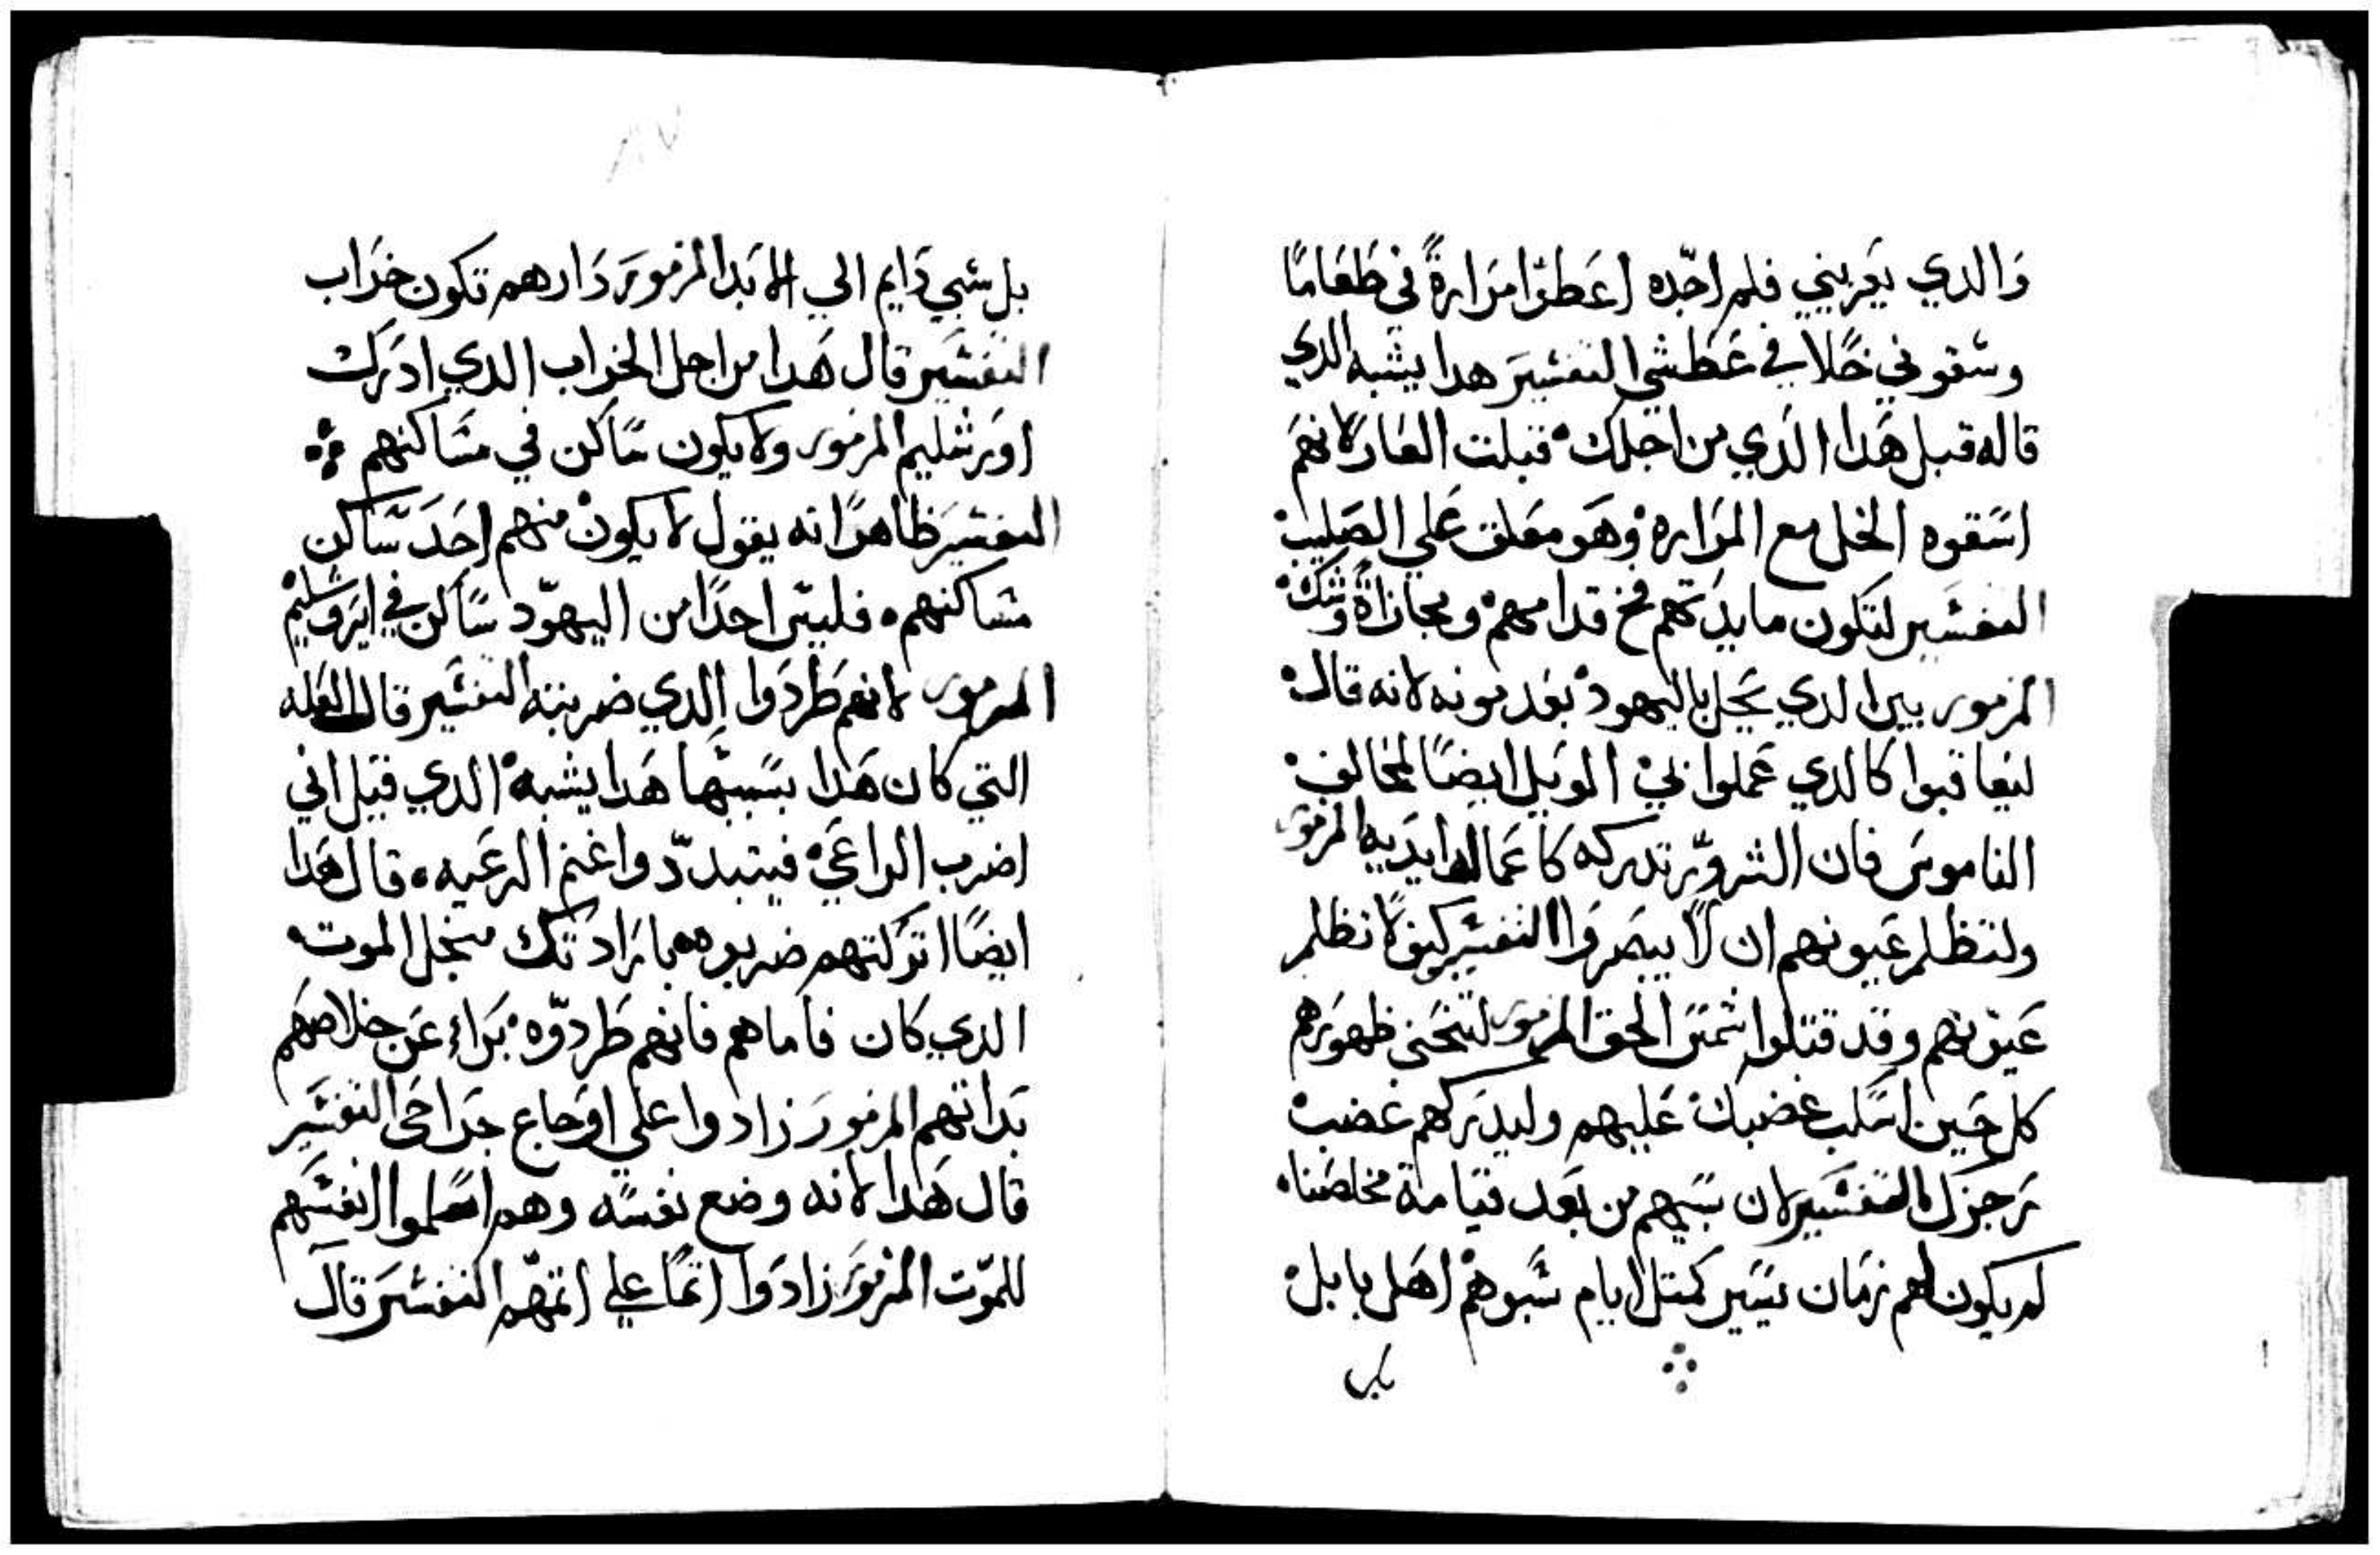 وَالدي يَعَربني فلم اجّده اعَطوّا مَرارةً في طَعَامًا
وسَقوني خَلًا في عَطشي التفسَير هدا يشبه الدي
قاله قبل هَدا الدَي من اجلك قبلت العَار لانهَم
اسَقوه الخل مع المَراره وهَو معَلق عَلي الصَليب
التفسَير لتكون مايدَتهم فخ قدامهم ومجازاةً وشك
المزمور بين الدي يَحل باليهود بعَد موته لانه قال
ليعَاقبوا كالدي عَملوا بي الوَيل ايضًا لمخالف
الناموسَ فان الشروّر تدركه كاعَمال ايديه المزمور
ولتظلم عَيونهم ان لا يبصَروا التفسير كيف لا تظلم
عَيونهم وقد قتلوا شمسَ الحق المزمور لتنحَني ظهورَهم
كل حَين اسَكب غضبك عَليهم وليدَركهم غضب
رَجزك التفسَير لان سَبيهم من بعَد قيامة مخلصَنا
لم يكون لهم زمَان يسَير كمتل ايام سَبوهم اهَل بابل
بل
بل شي دَايم الي الابَد المزمور دَارهم تكون خرَاب
التفسَير قال هَدا من اجل الخراب الدي ادرَك
اورَشليم المزمور ولا يكون سَاكن في مسَاكنهم
التفسَير ظاهرًا انه يقول لا يكون منهم احَد سَاكن
مسَاكنهم فليسَ احدًا من اليهوّد سَاكن في ايروشليم
المزمور لانهَم طردَوا الدي ضربته التفسَير قال العَله
التي كان هَدا بسَببها هَدا يشبه الدي قيَل اني
اضرب الراعَي فيتبدّدوا غنم الرعَيه قال هَدا
ايضًا اترَكتهم ضربوه بارَادتك منجل الموت
الدي كان فاما هم فانهم طَردوّه بَراء عَن خلاصهَم
بَداتهم المزمور زادوا علي اوَجاع جرَاحَي التفسَير
قال هَدا لانه وضع نفسَه وهم اسَلموا انفسَهم
للموّت المزمورَ زادَوا اثمًا علي اثمهّم التفسَير قال